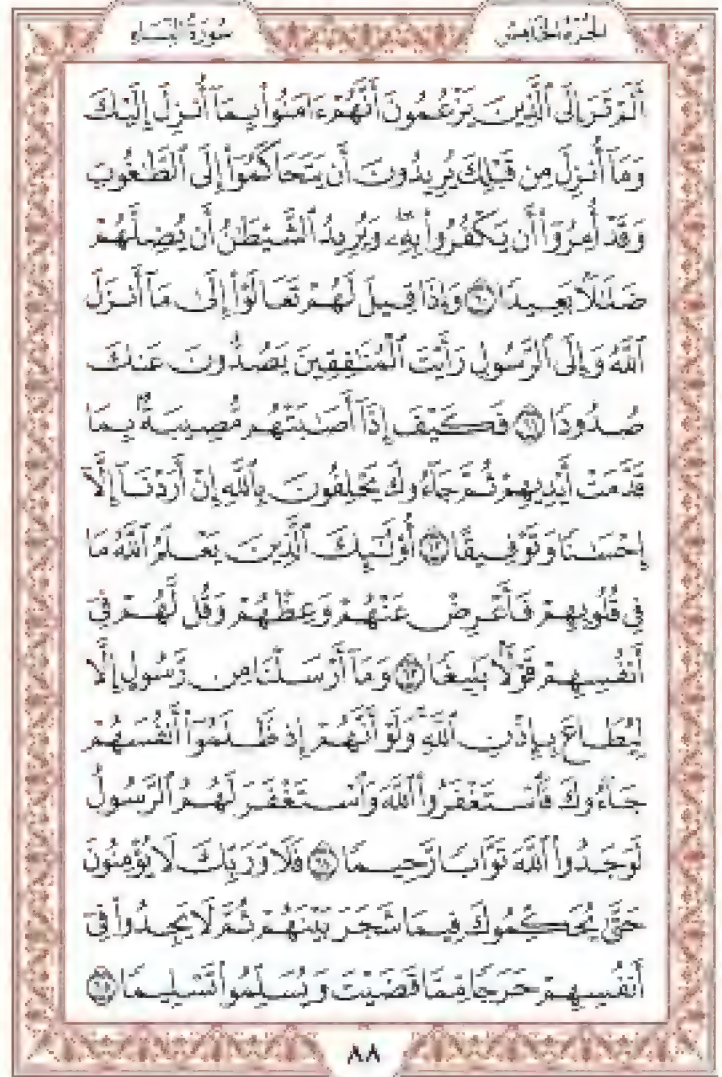 الجزء الخامس
سورة النساء
أَلَمْ تَرَ إِلَى ٱلَّذِينَ يَزْعُمُونَ أَنَّهُمْ ءَامَنُوا۟ بِمَآ أُنزِلَ إِلَيْكَ
وَمَآ أُنزِلَ مِن قَبْلِكَ يُرِيدُونَ أَن يَتَحَاكَمُوٓا۟ إِلَى ٱلطَّٰغُوتِ
وَقَدْ أُمِرُوٓا۟ أَن يَكْفُرُوا۟ بِهِۦ وَيُرِيدُ ٱلشَّيْطَٰنُ أَن يُضِلَّهُمْ
ضَلَٰلًۢا بَعِيدًا ٦٠ وَإِذَا قِيلَ لَهُمْ تَعَالَوْا۟ إِلَىٰ مَآ أَنزَلَ
ٱللَّهُ وَإِلَى ٱلرَّسُولِ رَأَيْتَ ٱلْمُنَٰفِقِينَ يَصُدُّونَ عَنكَ
صُدُودًا ٦١ فَكَيْفَ إِذَآ أَصَٰبَتْهُم مُّصِيبَةٌۢ بِمَا
قَدَّمَتْ أَيْدِيهِمْ ثُمَّ جَآءُوكَ يَحْلِفُونَ بِٱللَّهِ إِنْ أَرَدْنَآ إِلَّآ
إِحْسَٰنًا وَتَوْفِيقًا ٦٢ أُو۟لَٰٓئِكَ ٱلَّذِينَ يَعْلَمُ ٱللَّهُ مَا
فِى قُلُوبِهِمْ فَأَعْرِضْ عَنْهُمْ وَعِظْهُمْ وَقُل لَّهُمْ فِىٓ
أَنفُسِهِمْ قَوْلًۢا بَلِيغًا ٦٣ وَمَآ أَرْسَلْنَا مِن رَّسُولٍ إِلَّا
لِيُطَاعَ بِإِذْنِ ٱللَّهِ وَلَوْ أَنَّهُمْ إِذ ظَّلَمُوٓا۟ أَنفُسَهُمْ
جَآءُوكَ فَٱسْتَغْفَرُوا۟ ٱللَّهَ وَٱسْتَغْفَرَ لَهُمُ ٱلرَّسُولُ
لَوَجَدُوا۟ ٱللَّهَ تَوَّابًا رَّحِيمًا ٦٤ فَلَا وَرَبِّكَ لَا يُؤْمِنُونَ
حَتَّىٰ يُحَكِّمُوكَ فِيمَا شَجَرَ بَيْنَهُمْ ثُمَّ لَا يَجِدُوا۟ فِىٓ
أَنفُسِهِمْ حَرَجًا مِّمَّا قَضَيْتَ وَيُسَلِّمُوا۟ تَسْلِيمًا ٦٥
٨٨